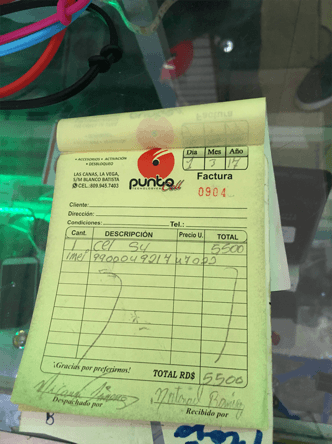 • ACCESORIOS • ACTIVACION
• DESBLOQUEO
LAS CANAS, LA VEGA,
S/M BLANCO BATISTA
CEL.: 809.945.7403
punto Cell
Día Mes Año
7 3 17
Factura
0904
Cliente:
Dirección:
Condiciones: Tel.:
Cant. DESCRIPCIÓN Precio U. TOTAL
1 cel S4 5500
imei
¡Gracias por preferirnos! TOTAL RD$ 5500
Despachado por Recibido por